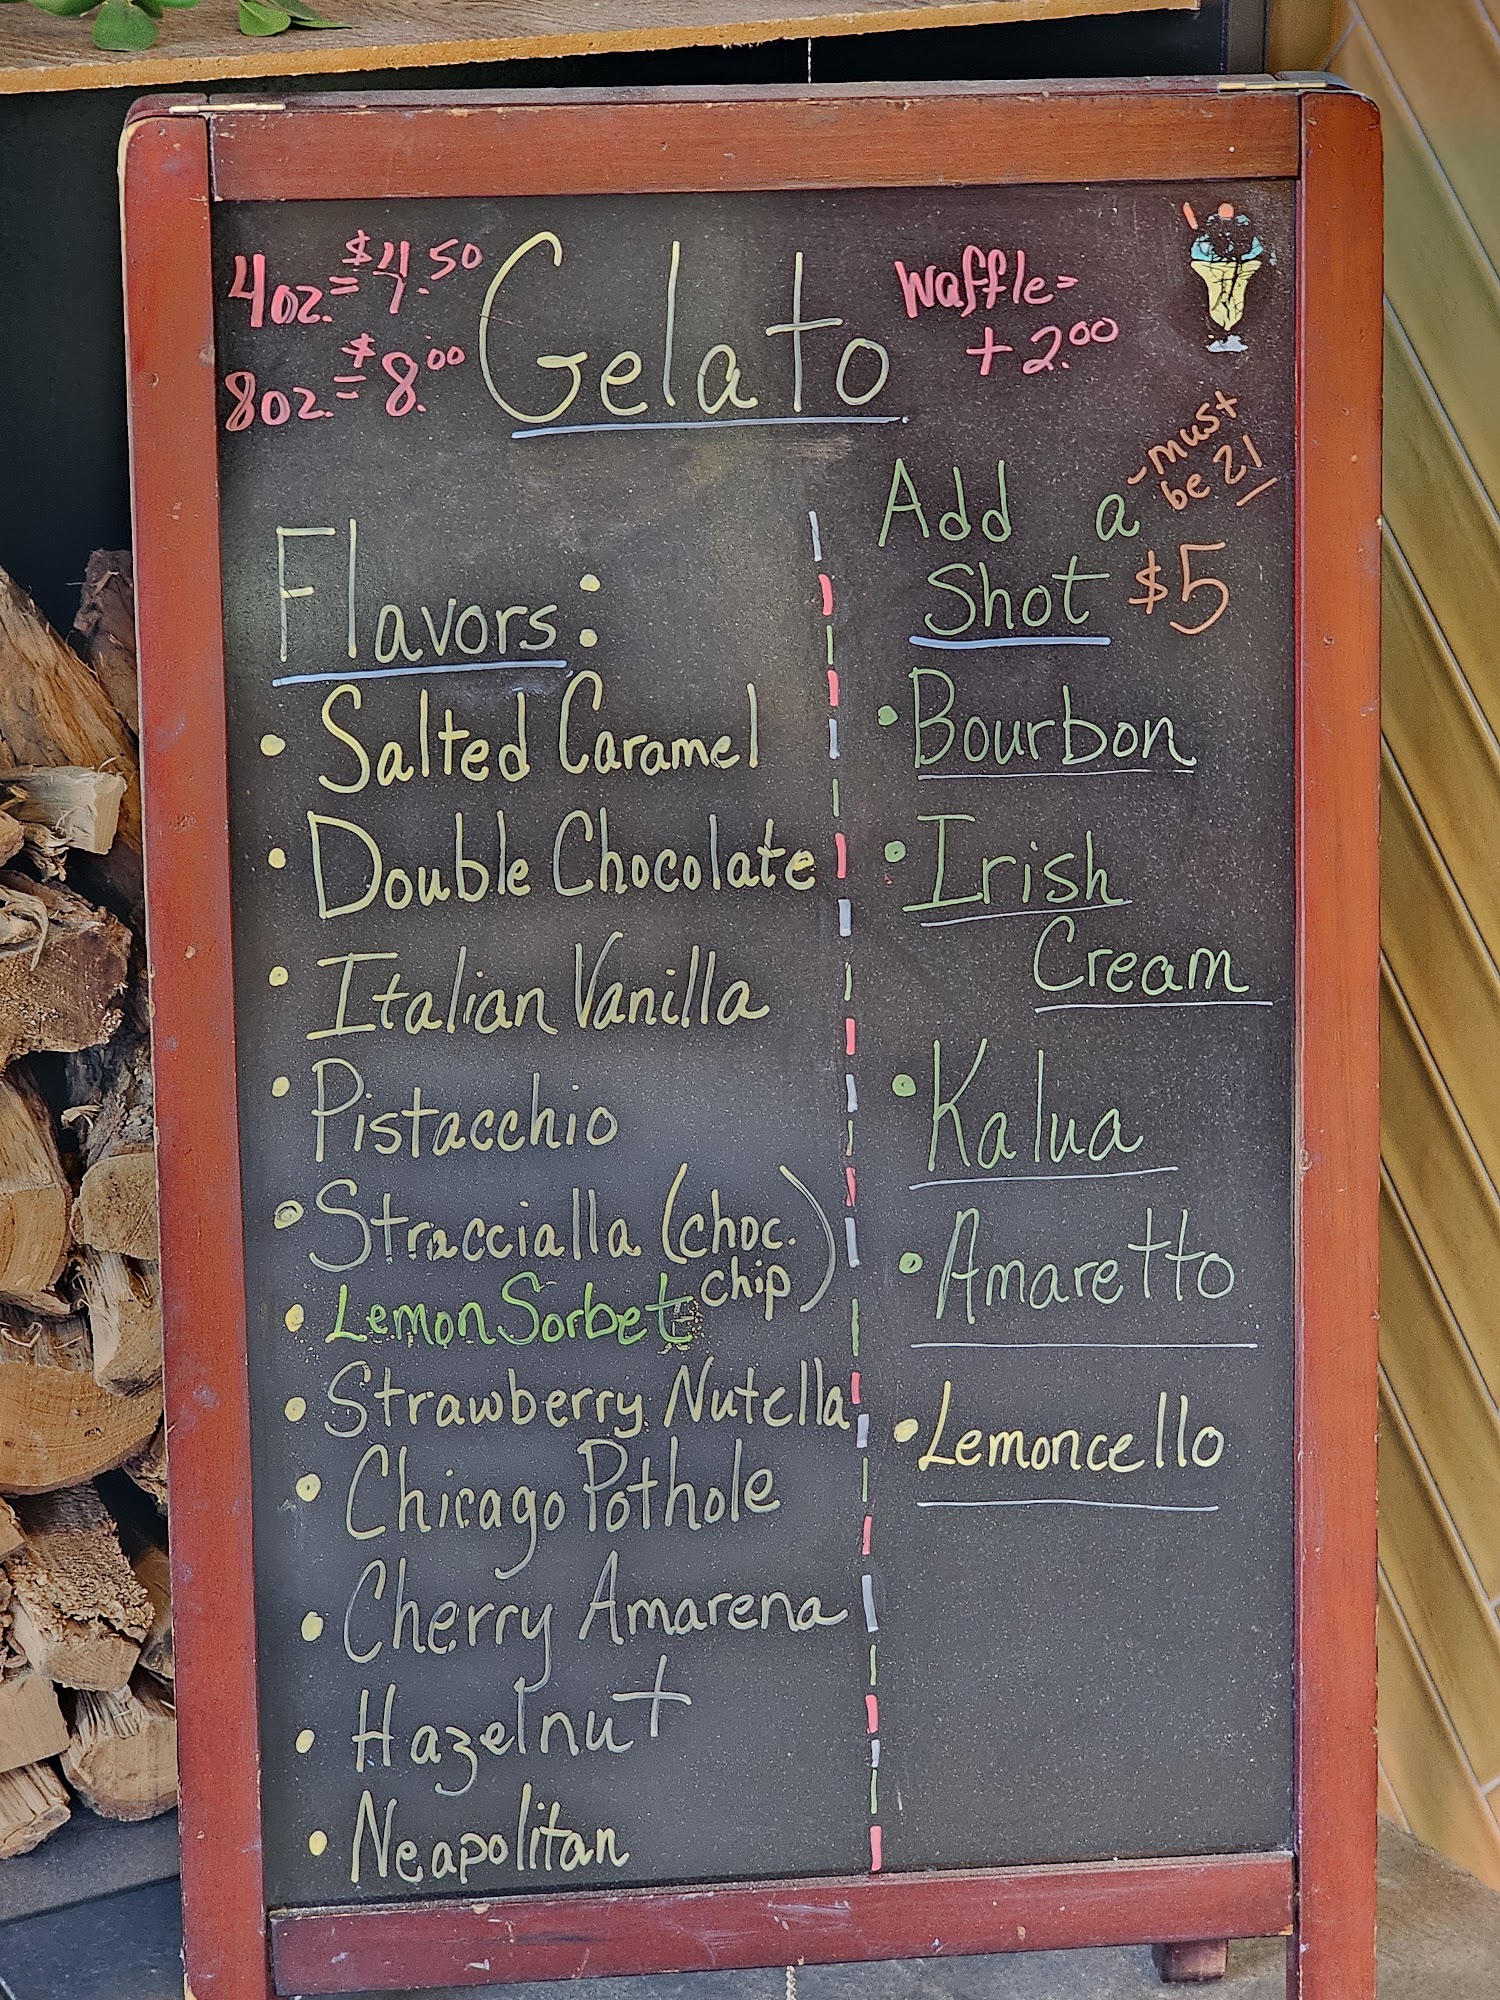 4oz. = $4.50
8oz. = $8.00
Gelato
Waffle =
+ 2.00
Flavors:
• Salted Caramel
• Double Chocolate
• Italian Vanilla
• Pistacchio
• Straccialla (choc.
chip)
• Lemon Sorbet
• Strawberry Nutella
• Chicago Pothole
• Cherry Amarena
• Hazelnut
• Neapolitan
Add a
Shot $5
- must
be 21
• Bourbon
• Irish
Cream
• Kalua
• Amaretto
• Lemoncello